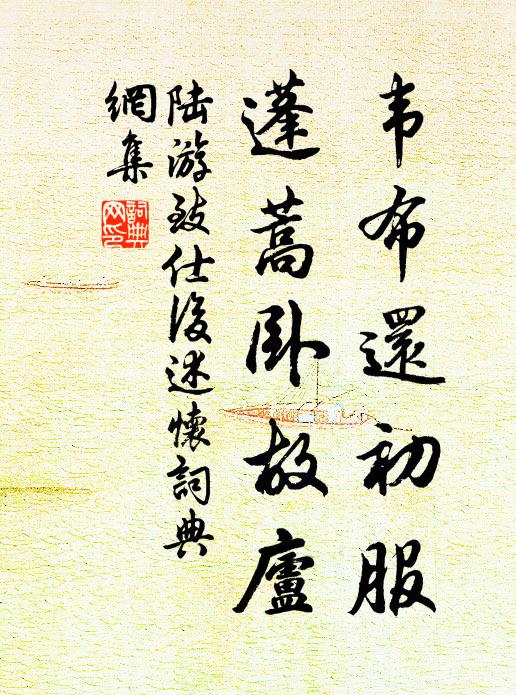 韦布還初服
蓬蒿卧故廬
陆游致仕後述懷詞典
網集
詞典
网印